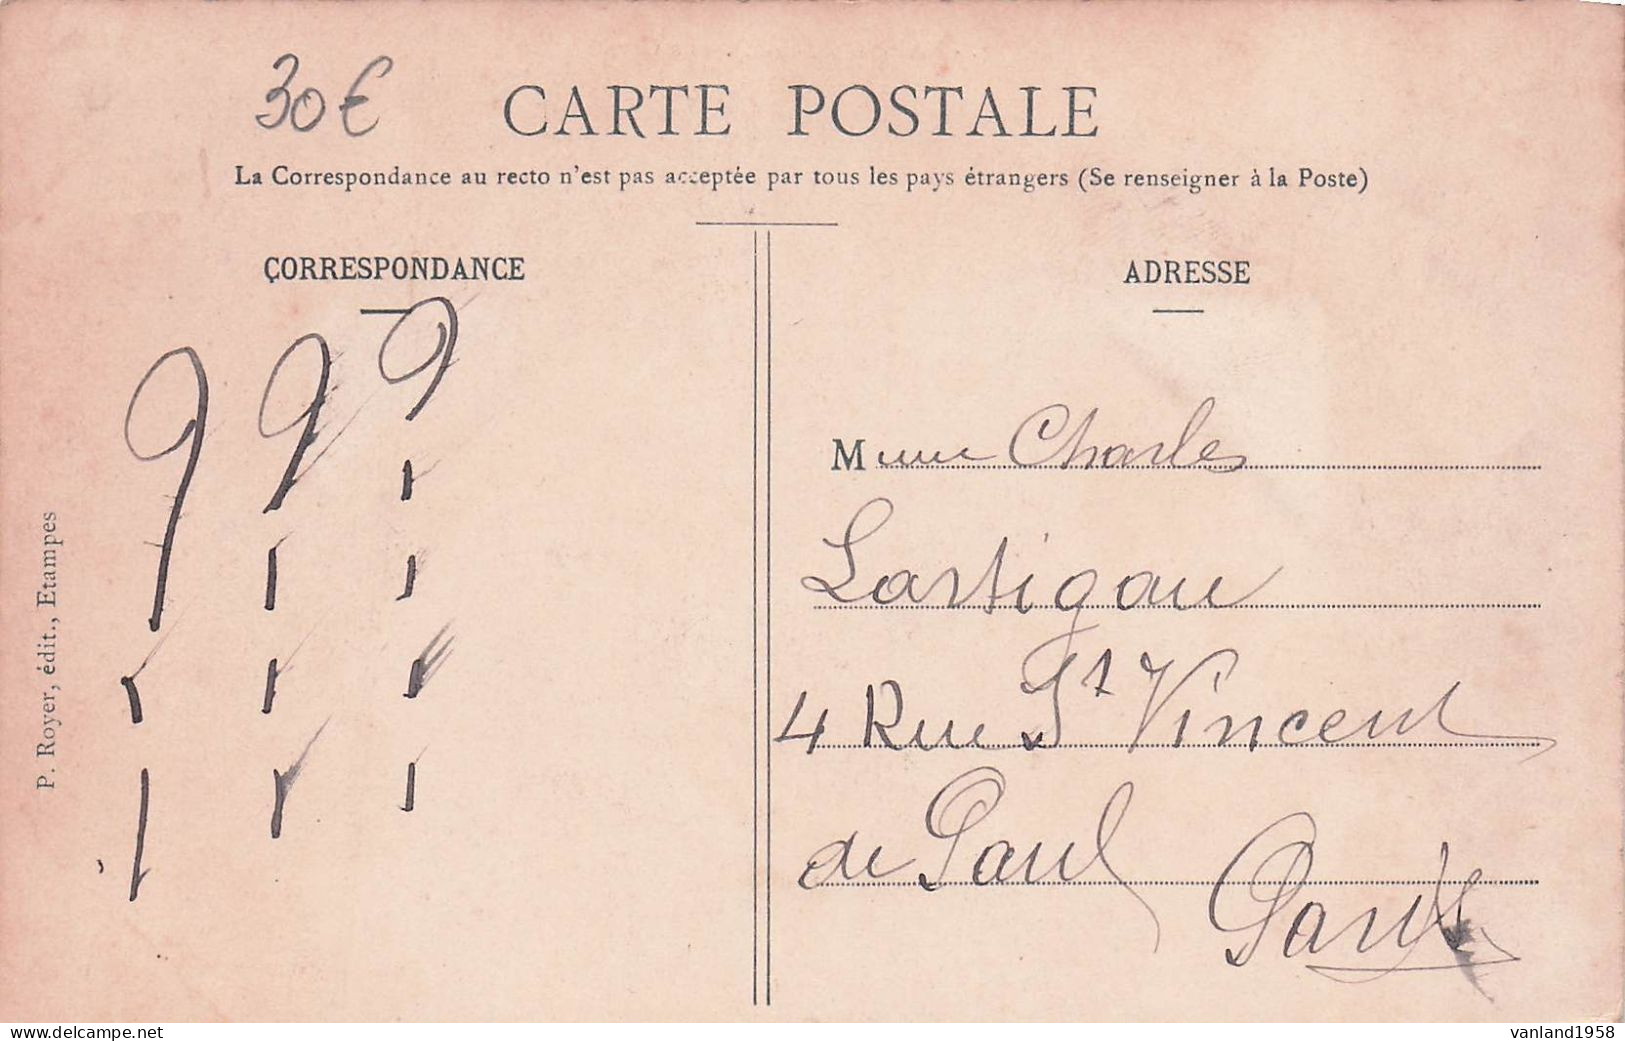 30€
CARTE POSTALE
La Correspondance au recto n'est pas acceptée par tous les pays étrangers (Se renseigner à la Poste)
CORRESPONDANCE
999
P. Royer, édit., Etampes
ADRESSE
Mme Charles
Lartigau
4 Rue St Vincent
de Paul
Paris
delcampe.net
vanland1958